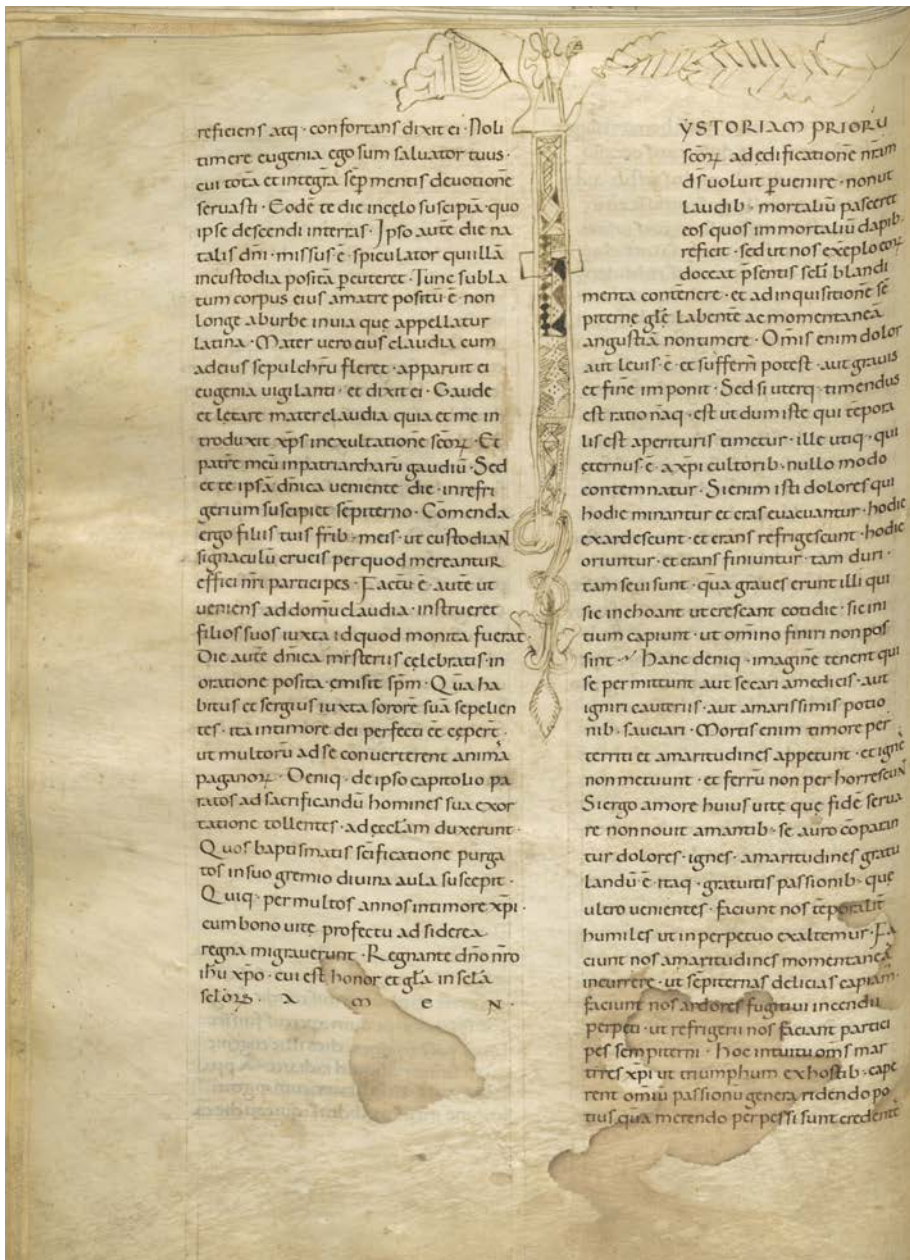 reficiens atq· confortans dixit ei· Noli
timere eugenia ego sum salvator tuus·
cui tota et integra sēp mentis devotione
servasti· Eodē te die incelo suscipiā· quo
ipse descendi interras· Ipso autē die na
talis dn̄i· missus ē· spiculator qui illā
incustodia positā p̄cuteret· Tunc subla
tum corpus eius amatre positū ē· non
longe aburbe invia que appellatur
latina· Mater vero eius claudia cum
adeius sepulchrū fleret· apparuit ei
eugenia vigilanti· et dixit ei· Gaude
et letare mater claudia quia et me in
troduxit xp̄s inexultatione sc̄oꝝ· Et
patrē meū inpatriarcharū gaudiū· Sed
et te ipsā dn̄ica veniente die· inrefri
gerium suscipiet sēpiterno· Cōmenda
ergo filiis tuis fr̄ib· meis· ut custodiaN
signaculū crucis per quod mereantuR
effici nr̄i participes· Factū ē· autē ut
veniens ad domū claudia· instrueret
filios suos iuxta id quod monita fuerat·
Die autē dn̄ica misteriis celebratis· in
oratione posita· emisit sp̄m· Quā ha
bitus et sergius iuxta sororē suā sepelien
tes· ita intimore dei perfecti et cepert̄·
ut multorū ad se converterent animā
paganoꝝ· Deniq· de ipso capitolio pa
ratos ad sacrificandū homines sua exor
tatione tollentes· adeccl̄am duxerunt·
Quos baptismatis sc̄ificatione purga
tos insuo gremio divina aula suscepit·
Quiq· per multos annos intimore xp̄i·
cum bono vite profectu ad siderea
regna migraverunt· Regnante dn̄o nr̄o
ihū xp̄o· cui est honor et gl̄a in sel̄a
sel̄oꝝ· A M E N·
YSTORIAM PRIORŪ
sc̄oꝝ ad edificationē nr̄am
d̄s voluit p̄venire· non ut
laudib· mortaliū pasceret
eos quos immortaliū dapib·
reficit· sed ut nos exēplo eoꝝ
doceat p̄sentis sel̄i blandi
menta contēnere· et ad inquisitionē sē
piterne gl̄e labentē ac momentaneā
angustiā non timere· Om̄is enim dolor
aut levis· ē· et sufferri potest· aut gravis
et finē imponit· Sed si uterq· timendus
est ratio naq· est ut dum iste qui tēpora
lis est aperituris timetur· ille utiq· qui
eternus ē· axp̄i cultorib· nullo modo
contemnatur· Si enim isti dolores qui
hodie minantur et cras evacuantur· hodie
exardescunt· et cras refrigescunt· hodie
oriuntur· et cras finiuntur· tam duri·
tam sevi sunt· quā graves erunt illi qui
sic inchoant ut crescant cotidie· sic ini
tium capiunt· ut omīno finiri non pos
sint· Hanc deniq· imaginē tenent qui
se permittunt aut secari amedicis· aut
igniri cauteriis· aut amarissimis potio
nib· sauciari· Mortis enim timore per
territi et amaritudines appetunt· et ignē
non metuunt· et ferrū non perhorrescuN̄
Si ergo amore huius vite que fidē serva
re non novit amantib· se auro cōparan
tur dolores· ignes· amaritudines gratu
landū ē· itaq· gratuitis passionib· que
ultro venientes· faciunt nos tēporalit̄
humiles ut inperpetuo exaltemur· Fa
ciunt nos amaritudines momentaneā
incurrere· ut sēpiternas delicias capiam·
faciunt nos ardores fugitivi incendii
perpeti· ut refrigerii nos faciant partici
pes sempiterni· Hoc intuitu om̄s mar
tires xp̄i ut triumphum exhostib· cape
rent omiū passionū genera ridendo po
tius quā merendo perpessi sunt credentē